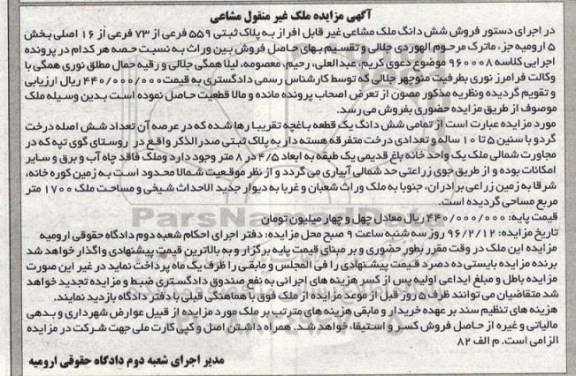 آگهی مزایده ملک غیر منقول مشاعی
در اجرای دستور فروش شش دانگ ملک مشاعی غیر قابل افراز به پلاک ثبتی ۵۵۹ فرعی از ۷۳ فرعی از ۱۶ اصلی بخش
۵ ارومیه جزء ماترک مرحوم الهوردی جلالی و تقسیم بهای حاصل فروش بین وراث به نسبت حصه هر کدام در پرونده
اجرایی کلاسه ۹۶۰۰۰۸ موضوع دعوی کریم، عبدالعلی، رحیم، معصومه، لیلا همگی جلالی و رقیه جمال مطلق نوری همگی با
وکالت فرامرز نوری بطرفیت منوچهر جلالی که توسط کارشناس رسمی دادگستری به قیمت ۴۴۰/۰۰۰/۰۰۰ ریال ارزیابی
و تقویم گردیده ونظریه مذکور مصون از تعرض اصحاب پرونده مانده و مالا قطعیت حاصل نموده است بدین وسیله ملک
موصوف از طریق مزایده حضوری بفروش می رسد.
مورد مزایده عبارت است از تمامی شش دانگ یک قطعه باغچه تقریبا رها شده که در عرصه آن تعداد شش اصله درخت
گردو با سنین ۵ تا ۱۰ ساله و تعدادی درخت متفرقه هسته دار به پلاک ثبتی صدرالذکر واقع در روستای گوی تپه که در
مجاورت شمالی ملک یک واحد خانه باغ قدیمی یک طبقه به ابعاد ۴/۵ در ۸ متر وجود دارد وملک فاقد چاه آب و برق و سایر
امکانات بوده و از طریق جوی زراعتی حد شمالی آبیاری می گردد و از نظر موقعیت شمالا محدود است به زمین کوره خانه،
شرقا به زمین زراعی برادران، جنوبا به ملک وراث شعبان و غربا به دیوار جدید الاحداث شیخی و مساحت ملک ۱۷۰۰ متر
مربع مساحی گردیده است.
قیمت پایه: ۴۴۰/۰۰۰/۰۰۰ ریال معادل چهل و چهار میلیون تومان
تاریخ مزایده: ۹۶/۲/۱۲ روز سه شنبه ساعت ۹ صبح محل مزایده: دفتر اجرای احکام شعبه دوم دادگاه حقوقی ارومیه
مزایده این ملک در وقت مقرر بطور حضوری و بر مبنای قیمت پایه برگزار و به بالاترین قیمت پیشنهادی واگذار خواهد شد
برنده مزایده بایستی ده درصد قیمت پیشنهادی را فی المجلس و مابقی را ظرف یک ماه پرداخت نماید در غیر این صورت
مزایده باطل و مبلغ ایداعی اولیه پس از کسر هزینه های اجرائی به نفع صندوق دادگستری ضبط و مزایده تجدید خواهد
شد متقاضیان می توانند ظرف ۵ روز قبل از موعد مزایده از ملک فوق با هماهنگی قبلی با دفتر دادگاه بازدید نمایند.
هزینه های تنظیم سند بر عهده خریدار و مابقی هزینه های مترتب بر ملک مورد مزایده از قبیل عوارض شهرداری و بدهی
مالیاتی و غیره از حاصل فروش کسر و استیفاء خواهد شد. همراه داشتن اصل و کپی کارت ملی جهت شرکت در مزایده
الزامی است. م الف ۸۲
مدیر اجرای شعبه دوم دادگاه حقوقی ارومیه